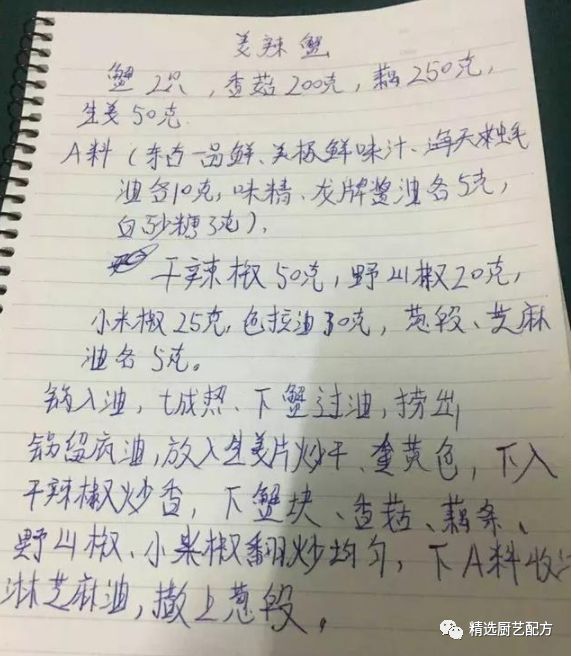 美辣蟹
蟹2只,香菇200克,藕250克,
生姜50克
A料(东古一品鲜、美极鲜味汁、海天蚝
油各10克,味精、龙牌酱油各5克,
白砂糖3克)。
干辣椒50克,野山椒20克,
小米椒25克,色拉油30克,葱段、芝麻
油各5克。
锅入油,七成热、下蟹过油,捞出
锅留底油,放入生姜片炒干、黄色,下入
干辣椒炒香,下蟹块、香菇、藕条、
野山椒、小米椒翻炒均匀,下A料收
淋芝麻油,撒上葱段。
精选厨艺配方